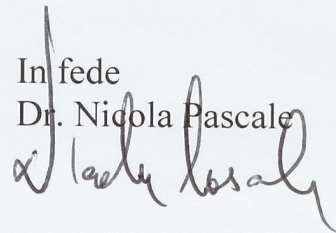 In fede
Dr. Nicola Pascale
Nicola Pascale